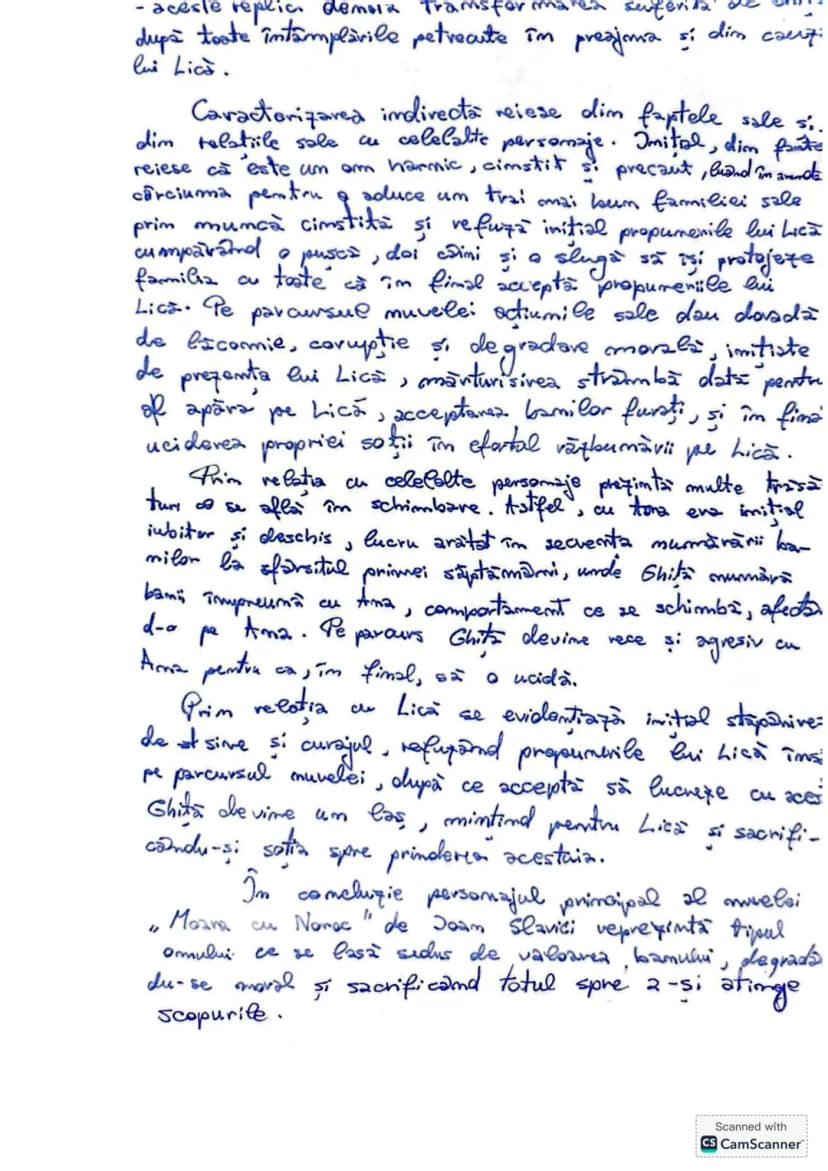 - aceste replici denotă transformarea suferită de
după toate întâmplările petrecute în preajma și din cauza
lui Lică.
Caracterizarea indirectă reiese din faptele sale și
din relațiile sale cu celelalte personaje. Inițial, din fapte
reiese că este un om harnic, cinstit și precaut, luând în arendă
cârciuma pentru a aduce un trai mai bun familiei sale
prin muncă cinstită și refuză inițial propunerile lui Lică
cumpărând o pușcă, doi câini și o slugă să își protejeze
familia cu toate că în final acceptă propuneriile lui
Lică. Pe parcursul nuvelei acțiunile sale dau dovadă
de lăcomie, corupție și degradare morală, inițiate
de prezența lui Lică, mărturisirea strâmbă dată pentru
al apăra pe Lică, acceptarea banilor furați, și în final
uciderea propriei soții în efortul răzbunării pe Lică.
Prin relația cu celelalte personaje prezintă multe trăsă
turi ce se află în schimbare. Astfel, cu Ana era inițial
iubitor și deschis, lucru arătat în secvența numărării ba-
nilor la sfârșitul primei săptămâni, unde Ghiță numără
banii împreună cu Ana, comportament ce se schimbă, afectâ
d-o pe Ana. Pe parcurs Ghiță devine rece și agresiv cu
Ana pentru ca, în final, să o ucidă.
Prin relația cu Lică se evidențiază inițial stăpânirea
de sine și curajul, refuzând propunerile lui Lică îns
pe parcursul nuvelei, după ce acceptă să lucreze cu aces
Ghiță devine un laș, mințind pentru Lică și sacrifi-
cându-și soția spre prinderea acestuia.
În concluzie personajul principal al nuvelei
"Moara cu Noroc" de Ioan Slavici reprezintă tipul
omului ce se lasă sedus de valoarea banului, degradâ
du-se moral și sacrificând totul spre a-și atinge
scopurile.
Scanned with
CS CamScanner